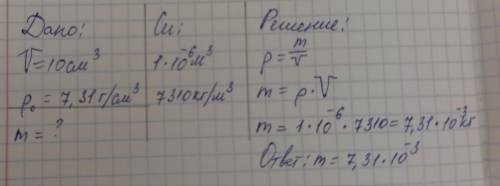 Дано:
V=10см³
ρ₀ = 7,31г/см³
m = ?
Си:
1·10⁻⁶м³
7310кг/м³
Решение:
ρ = m/V
m = ρ·V
m = 1·10⁻⁶ · 7310 = 7,31·10⁻³кг
Ответ: m = 7,31·10⁻³